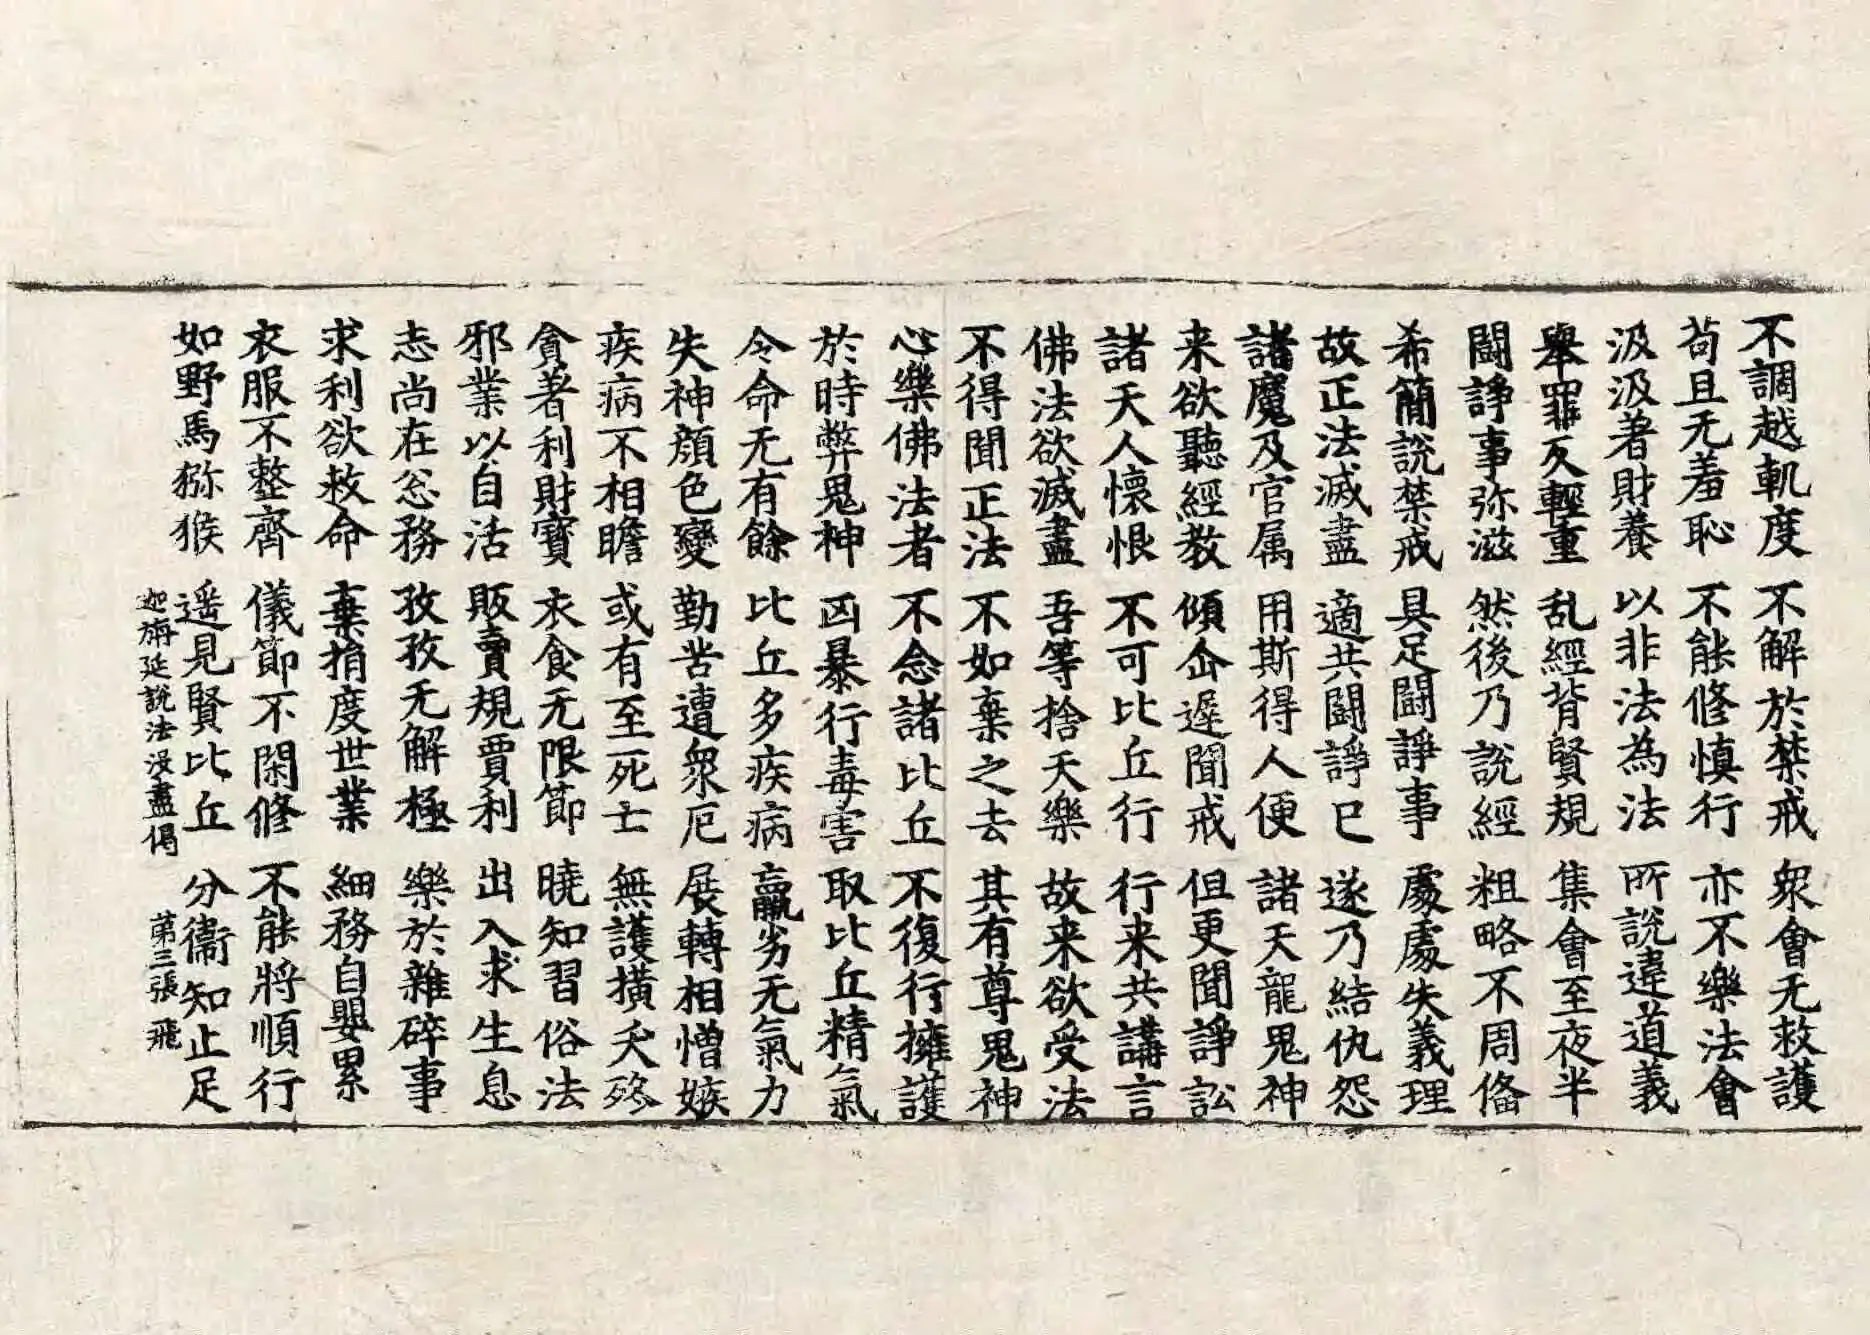 不調越軌度　不解於禁戒　衆會无救護
苟且无羞恥　不能修慎行　亦不樂法會
汲汲著財養　以非法為法　所說違道義
舉罪反輕重　乱經背賢規　集會至夜半
鬪諍事弥滋　然後乃說經　粗略不周俻
希簡說禁戒　具足鬪諍事　處處失義理
故正法滅盡　適共鬪諍已　遂乃結仇怨
諸魔及官属　用斯得人便　諸天龍鬼神
来欲聽經教　傾企遲聞戒　但更聞諍訟
諸天人懷恨　不可比丘行　行来共講言
佛法欲滅盡　吾等捨天樂　故来欲受法
不得聞正法　不如棄之去　其有尊鬼神
心樂佛法者　不念諸比丘　不復行擁護
於時弊鬼神　凶暴行毒害　取比丘精氣
令命无有餘　比丘多疾病　羸劣无氣力
失神顔色變　勤苦遭衆厄　展轉相憎嫉
疾病不相瞻　或有至死亡　無護橫夭殁
貪著利財寶　衣食无限節　曉知習俗法
邪業以自活　販賣規賈利　出入求生息
志尚在忩務　孜孜无解極　樂於雜碎事
求利欲救命　棄捐度世業　細務自嬰累
衣服不整齊　儀節不閑修　不能將順行
如野馬猕猴　遥見賢比丘　分衞知止足
迦旃延說法没盡偈　第三張　飛